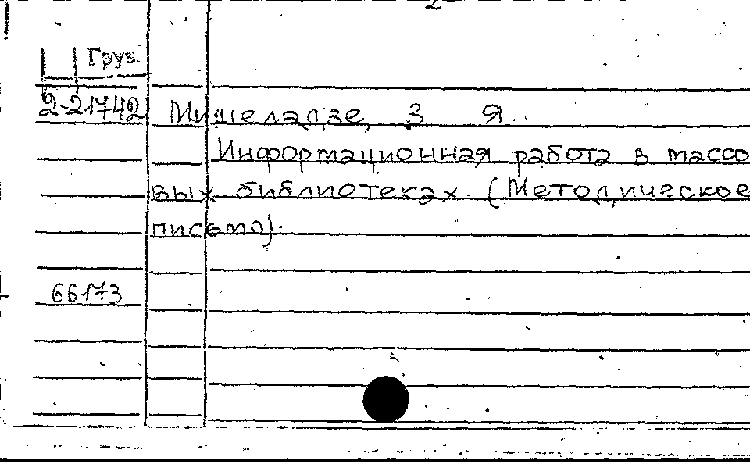 2
Груз.
2-21742
Мишеладзе, З Я.
Информационная работа в массо
вых библиотеках. (Методическое
письмо).
66173